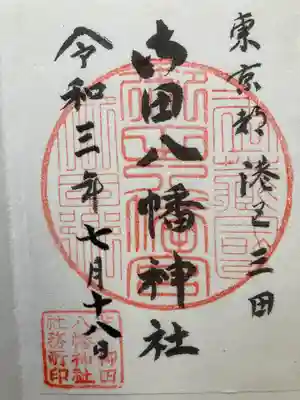 東京都港区三田
御田八幡神社
令和三年七月十八日
御田
八幡神社
社務所印